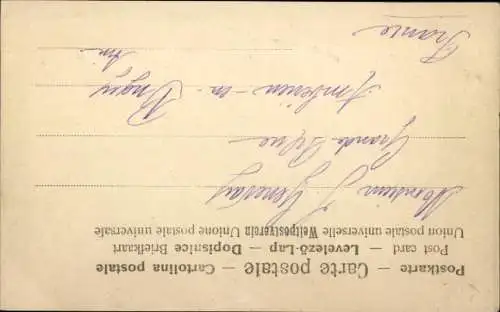 Postkarte — Carte postale — Cartolina postale
Post card — Levelező-Lap — Dopisnice Briefkaart
Union postale universelle Weltpostverein Unione postale universale
Monsieur J.
Grande
Ambérieu-en-Bugey
Ain
France